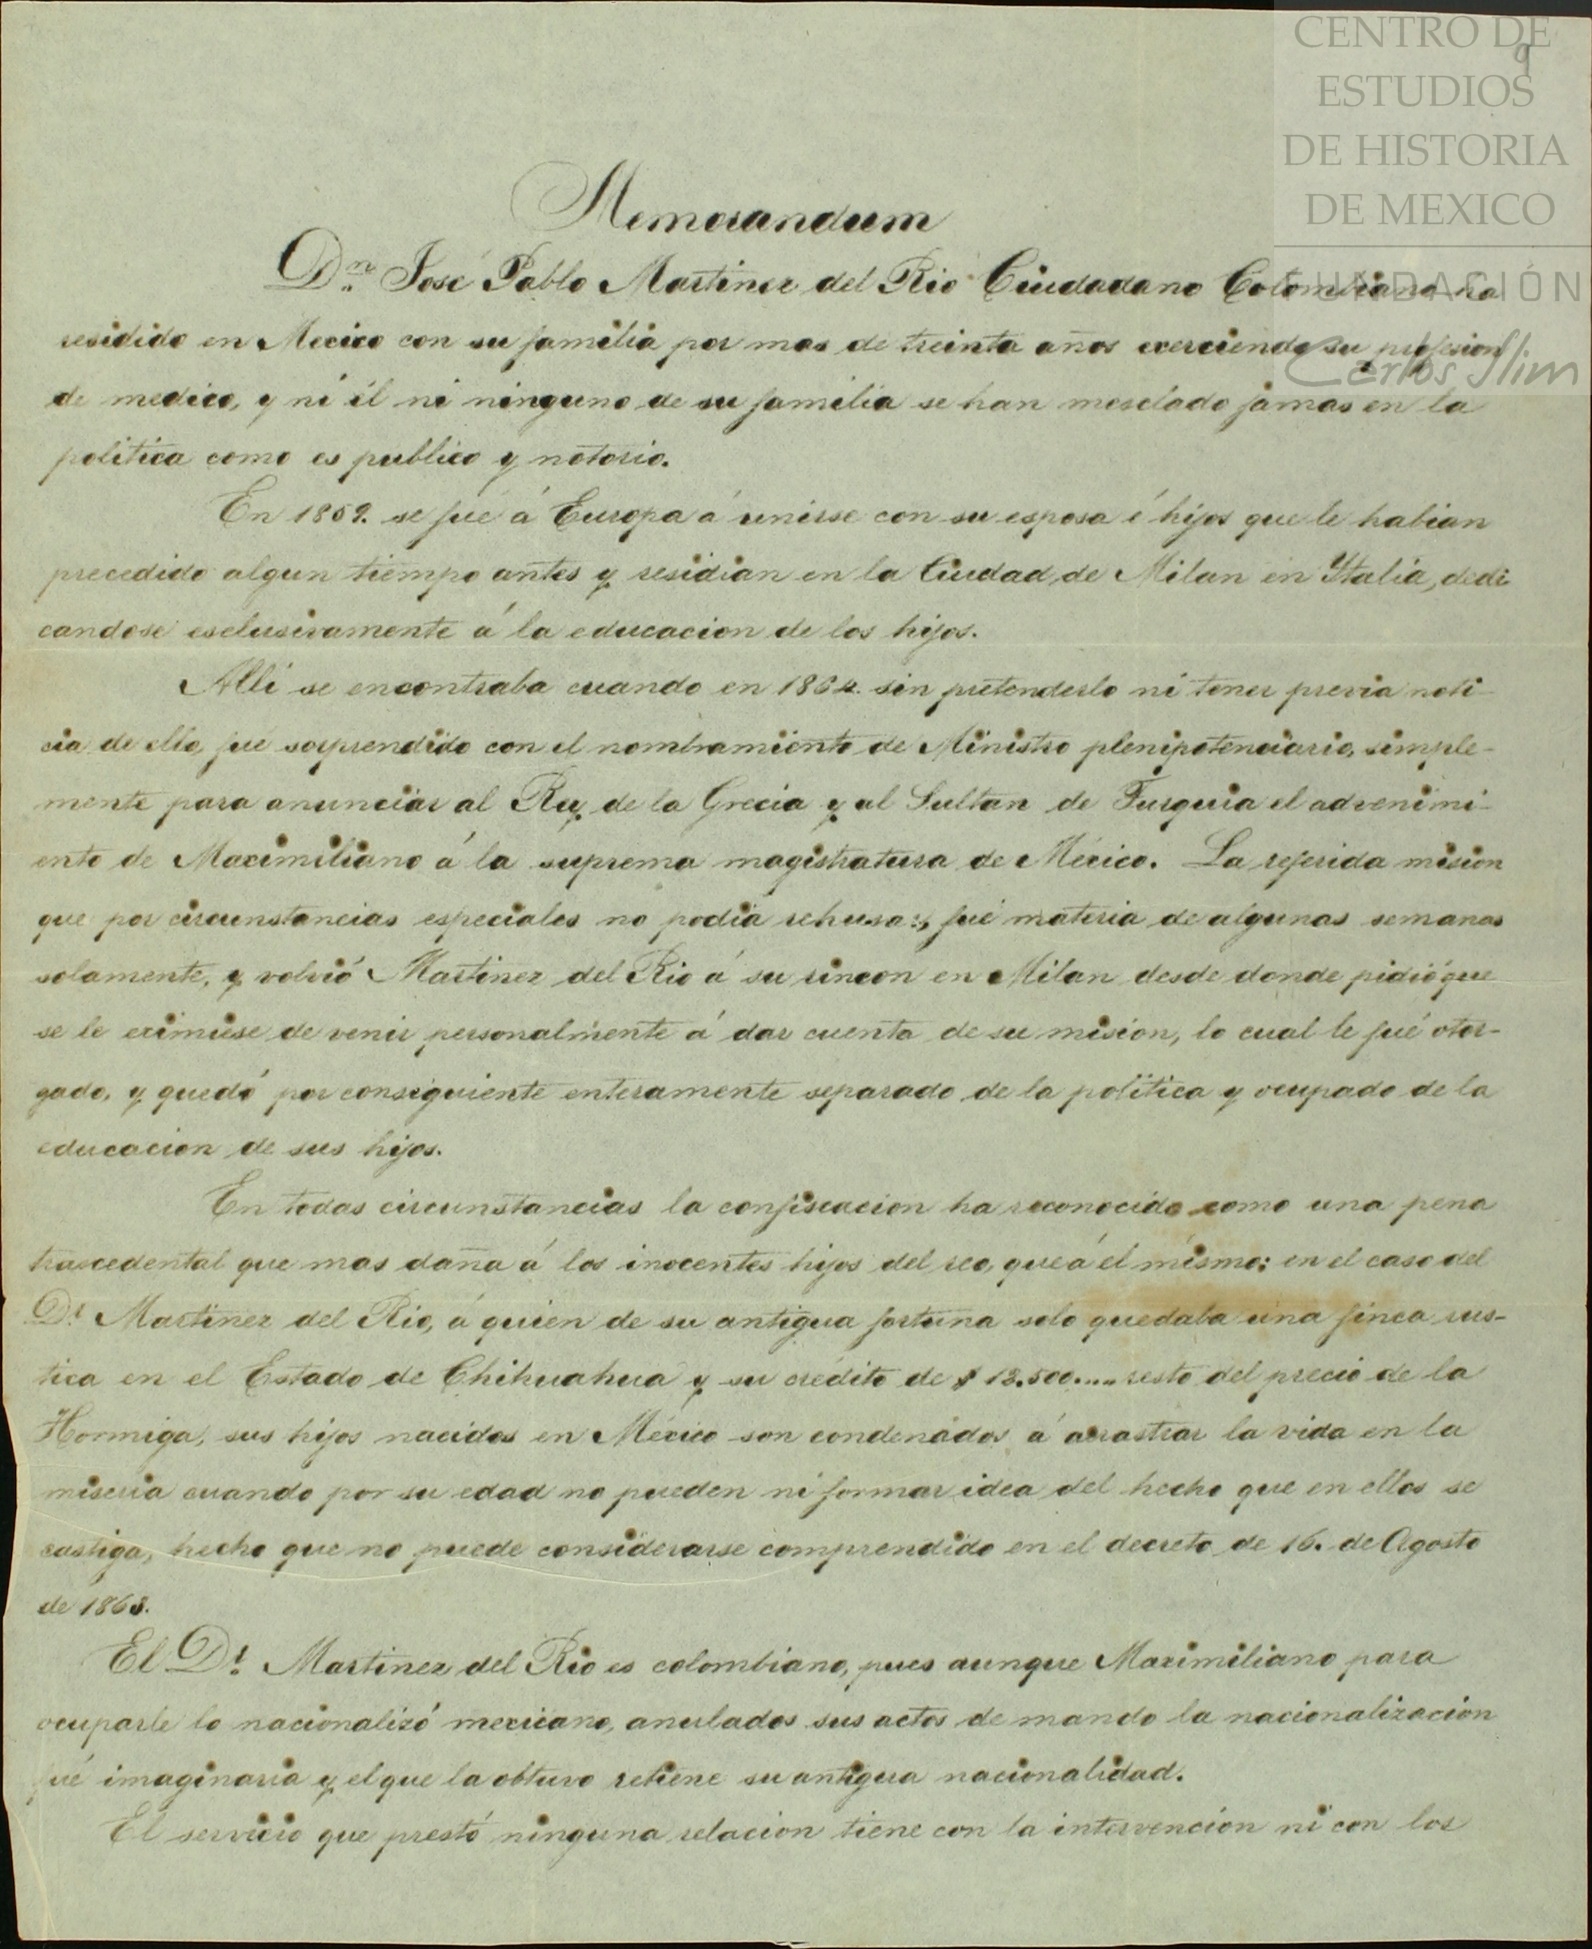 CENTRO DE
ESTUDIOS
DE HISTORIA
DE MEXICO
FUNDACIÓN
Carlos Slim
9
Memorandum
Dn. José Pablo Martinez del Rio Ciudadano Colombiano ha
residido en Mexico con su familia por mas de treinta años exerciendo su profesion
de medico, y ni él ni ninguno de su familia se han mesclado jamas en la
politica como es publico y notorio.
En 1859. se fué á Europa á unirse con su esposa é hijos que le habian
precedido algun tiempo antes y residian en la Ciudad de Milan en Ytalia, dedi
candose esclusivamente á la educacion de los hijos.
Alli se encontraba cuando en 1864. sin pretenderlo ni tener previa noti-
cia de ello, fué sorprendido con el nombramiento de Ministro plenipotenciario, simple-
mente para anunciar al Rey de la Grecia y al Sultan de Turquia el advenimi-
ento de Maximiliano á la suprema magistratura de México. La referida mision
que por circunstancias especiales no podia rehusar, fué materia de algunas semanas
solamente, y volvió Martinez del Rio á su rincon en Milan desde donde pidió que
se le eximiese de venir personalmente á dar cuenta de su mision, lo cual le fué otor-
gado, y quedó por consiguiente enteramente separado de la politica y ocupado de la
educacion de sus hijos.
En todas circunstancias la confiscacion ha reconocido como una pena
trascedental que mas daña á los inocentes hijos del reo, que á él mismo; en el caso del
Dr. Martinez del Rio, á quien de su antigua fortuna solo quedaba una finca rus-
tica en el Estado de Chihuahua y su crédito de $ 12.500.... resto del precio de la
Hormiga, sus hijos nacidos en México son condenados á arrastrar la vida en la
miseria cuando por su edad no pueden ni formar idea del hecho que en ellos se
castiga, hecho que no puede considerarse comprendido en el decreto de 16. de Agosto
de 1863.
El Dr. Martinez del Rio es colombiano, pues aunque Maximiliano para
ocuparle lo nacionalizó mexicano, anulados sus actos de mando la nacionalizacion
fué imaginaria y el que la obtuvo retiene su antigua nacionalidad.
El servicio que prestó ninguna relacion tiene con la intervencion ni con los